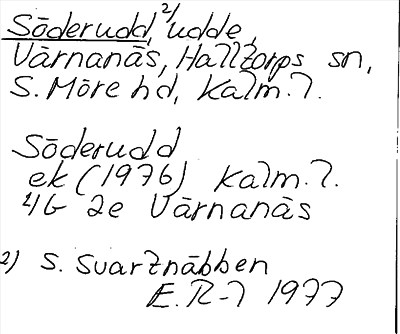 Söderudd,²⁾ udde,
Värnanäs, Halltorps sn,
S. Möre hd, Kalm. l.
Söderudd
ek (1976) Kalm. l.
4G 2e Värnanäs
2) S. Svartnäbben
E.R-l 1977